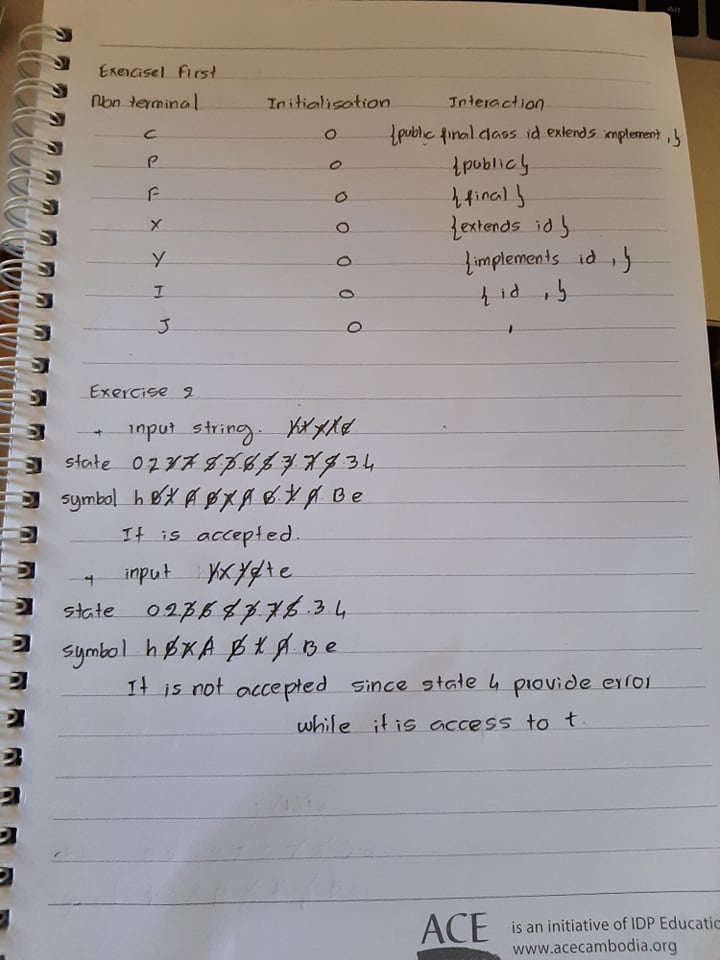 Alt
Exercise1 First
Non terminal Initialisation Interaction
C 0 {public final class id extends implement , }
P 0 {public}
F 0 {final}
X 0 {extends id}
Y 0 {implements id , }
I 0 { id , }
J 0 ,
Exercise 2
input string.
state 0 2 3 4
symbol h B e
It is accepted.
input t e
state 0 2 . 3 4
symbol h A B e
It is not accepted since state 4 provide error
while it is access to t.
ACE is an initiative of IDP Educatio
www.acecambodia.org